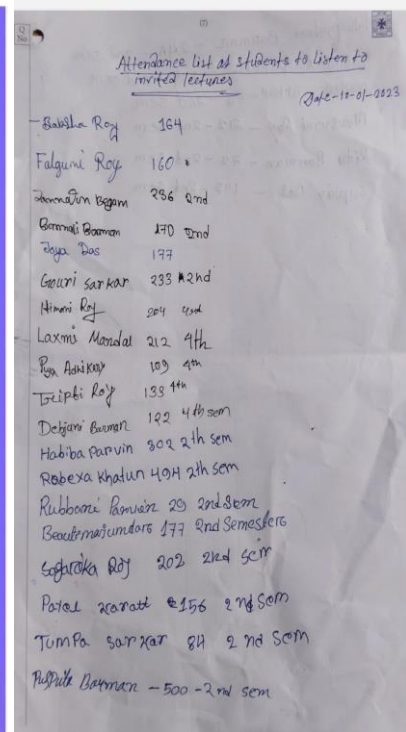 Q
No
Attendance list of students to listen to
invited lectures
Date-10-01-2023
Roy 164
Falguni Roy 160
Begam 286 2nd
Barman 170 2nd
Joya Das 177
Gouri Sarkar 233 2nd
Himani Roy 204
Laxmi Mandal 212 4th
Puja Adhikary 109 4th
Tripti Roy 133 4th
Debjani Barman 122 4th sem
Habiba Parvin 302 2th sem
Robexa Khatun 494 2th sem
Rubbani Parvin 29 2nd Sem
177 2nd Semesters
Sagarika Roy 202 2nd sem
Payel 156 2nd Sem
Tumpa Sarkar 84 2nd Sem
Barman - 500 - 2nd sem